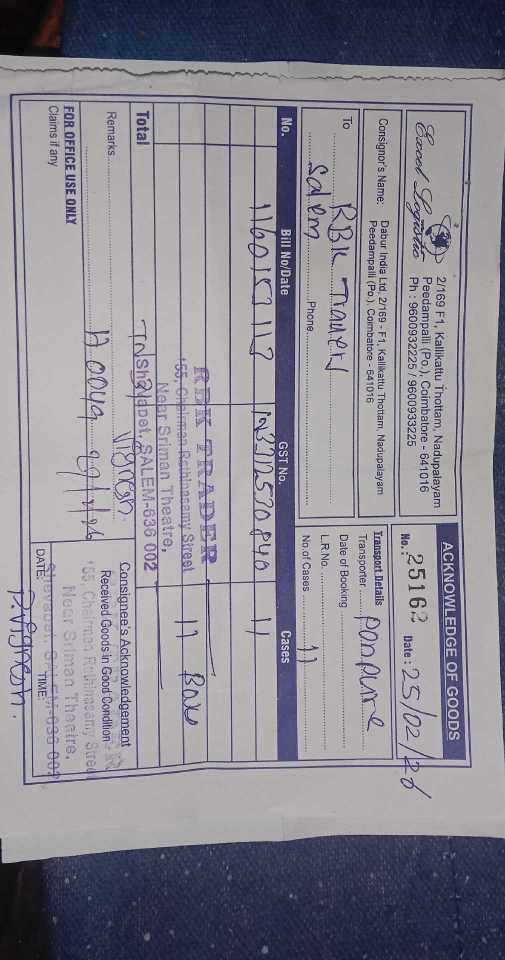 ACKNOWLEDGE OF GOODS
Excel Logistic
2/169 F1, Kallikattu Thottam, Nadupalayam
Peedampalli (Po.), Coimbatore - 641016
Ph : 9600932225 / 9600933225
No.: 25162 Date : 25/02/26
Consignor's Name: Dabur India Ltd, 2/169 - F1, Kallikattu Thottam, Nadupalayam
Peedampalli (Po.), Coimbatore - 641016
Transport Details
Transporter
Date of Booking
L.R.No.
No.of Cases 11
To RBK Traders
Salem Phone
No. Bill No/Date GST No. Cases
11
RBK TRADER
155, Chairman Rathinasamy Street
Near Sriman Theatre,
Shevapet, SALEM-636 002
11 Box
Total
Vignesh.
Remarks
Consignee's Acknowledgement
Received Goods in Good Condition
155, Chairman Rathinasamy Street
Near Sriman Theatre,
Shevapet, SALEM-636 002
FOR OFFICE USE ONLY
Claims if any
DATE: TIME:
P. Vignesh.